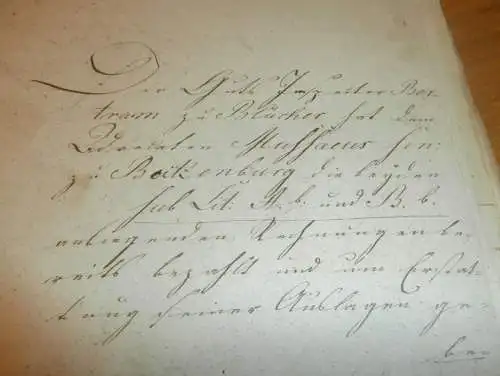 Der Guts Inspector Ber-
tram zu Blücher hat dem
Advocaten Mussaeus sen:
zu Boitzenburg die beyden
sub Lit: A. b. und B. b.
anliegenden Rechnungen be-
reits bezahlt und um Erstat-
tung seiner Auslagen ge-
ben